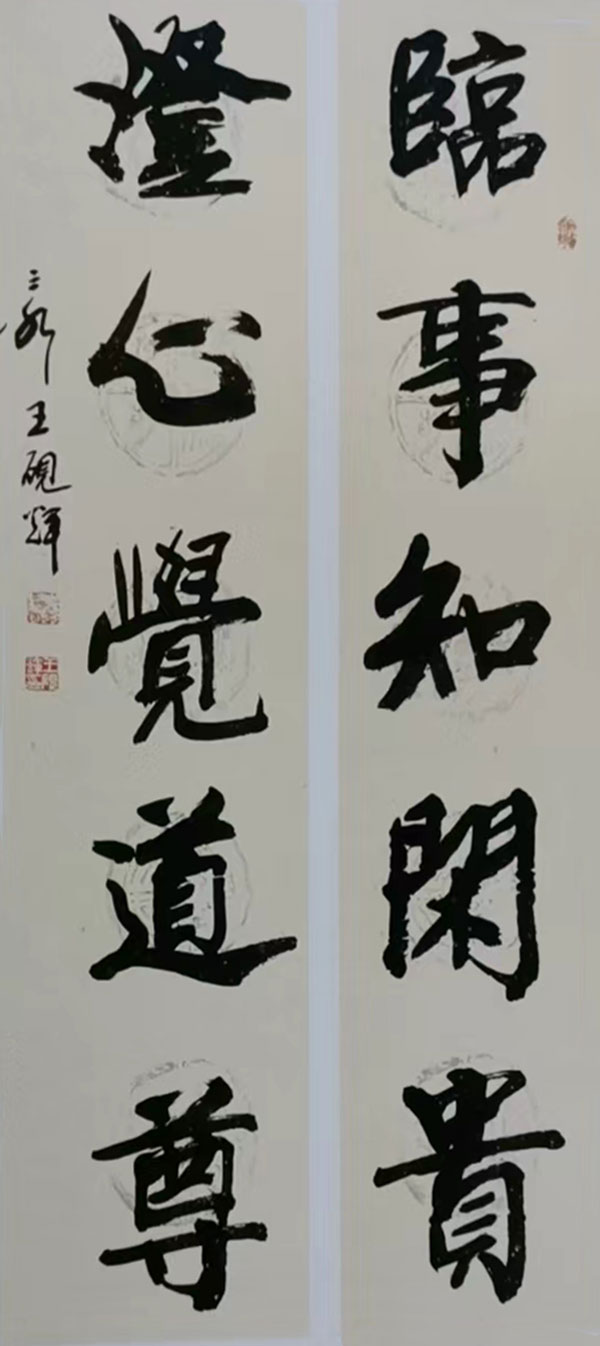 臨事知閑貴
澄心覺道尊
王硯輝